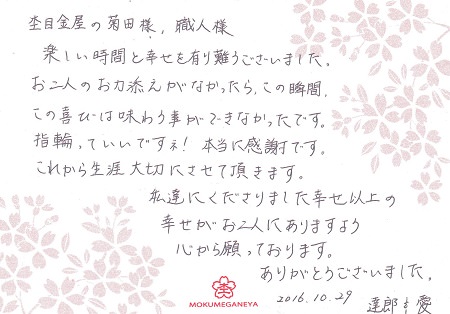 杢目金屋の菊田様，職人様
楽しい時間と幸せを有り難うございました。
お2人のお力添えがなかったら，この瞬間，
この喜びは味わう事ができなかったです。
指輪っていいですネ！本当に感謝です。
これから生涯大切にさせて頂きます。
私達にくださりました幸せ以上の
幸せがお2人にありますよう
心から願っております。
ありがとうございました。
2016.10.29 達郎 愛
MOKUMEGANEYA